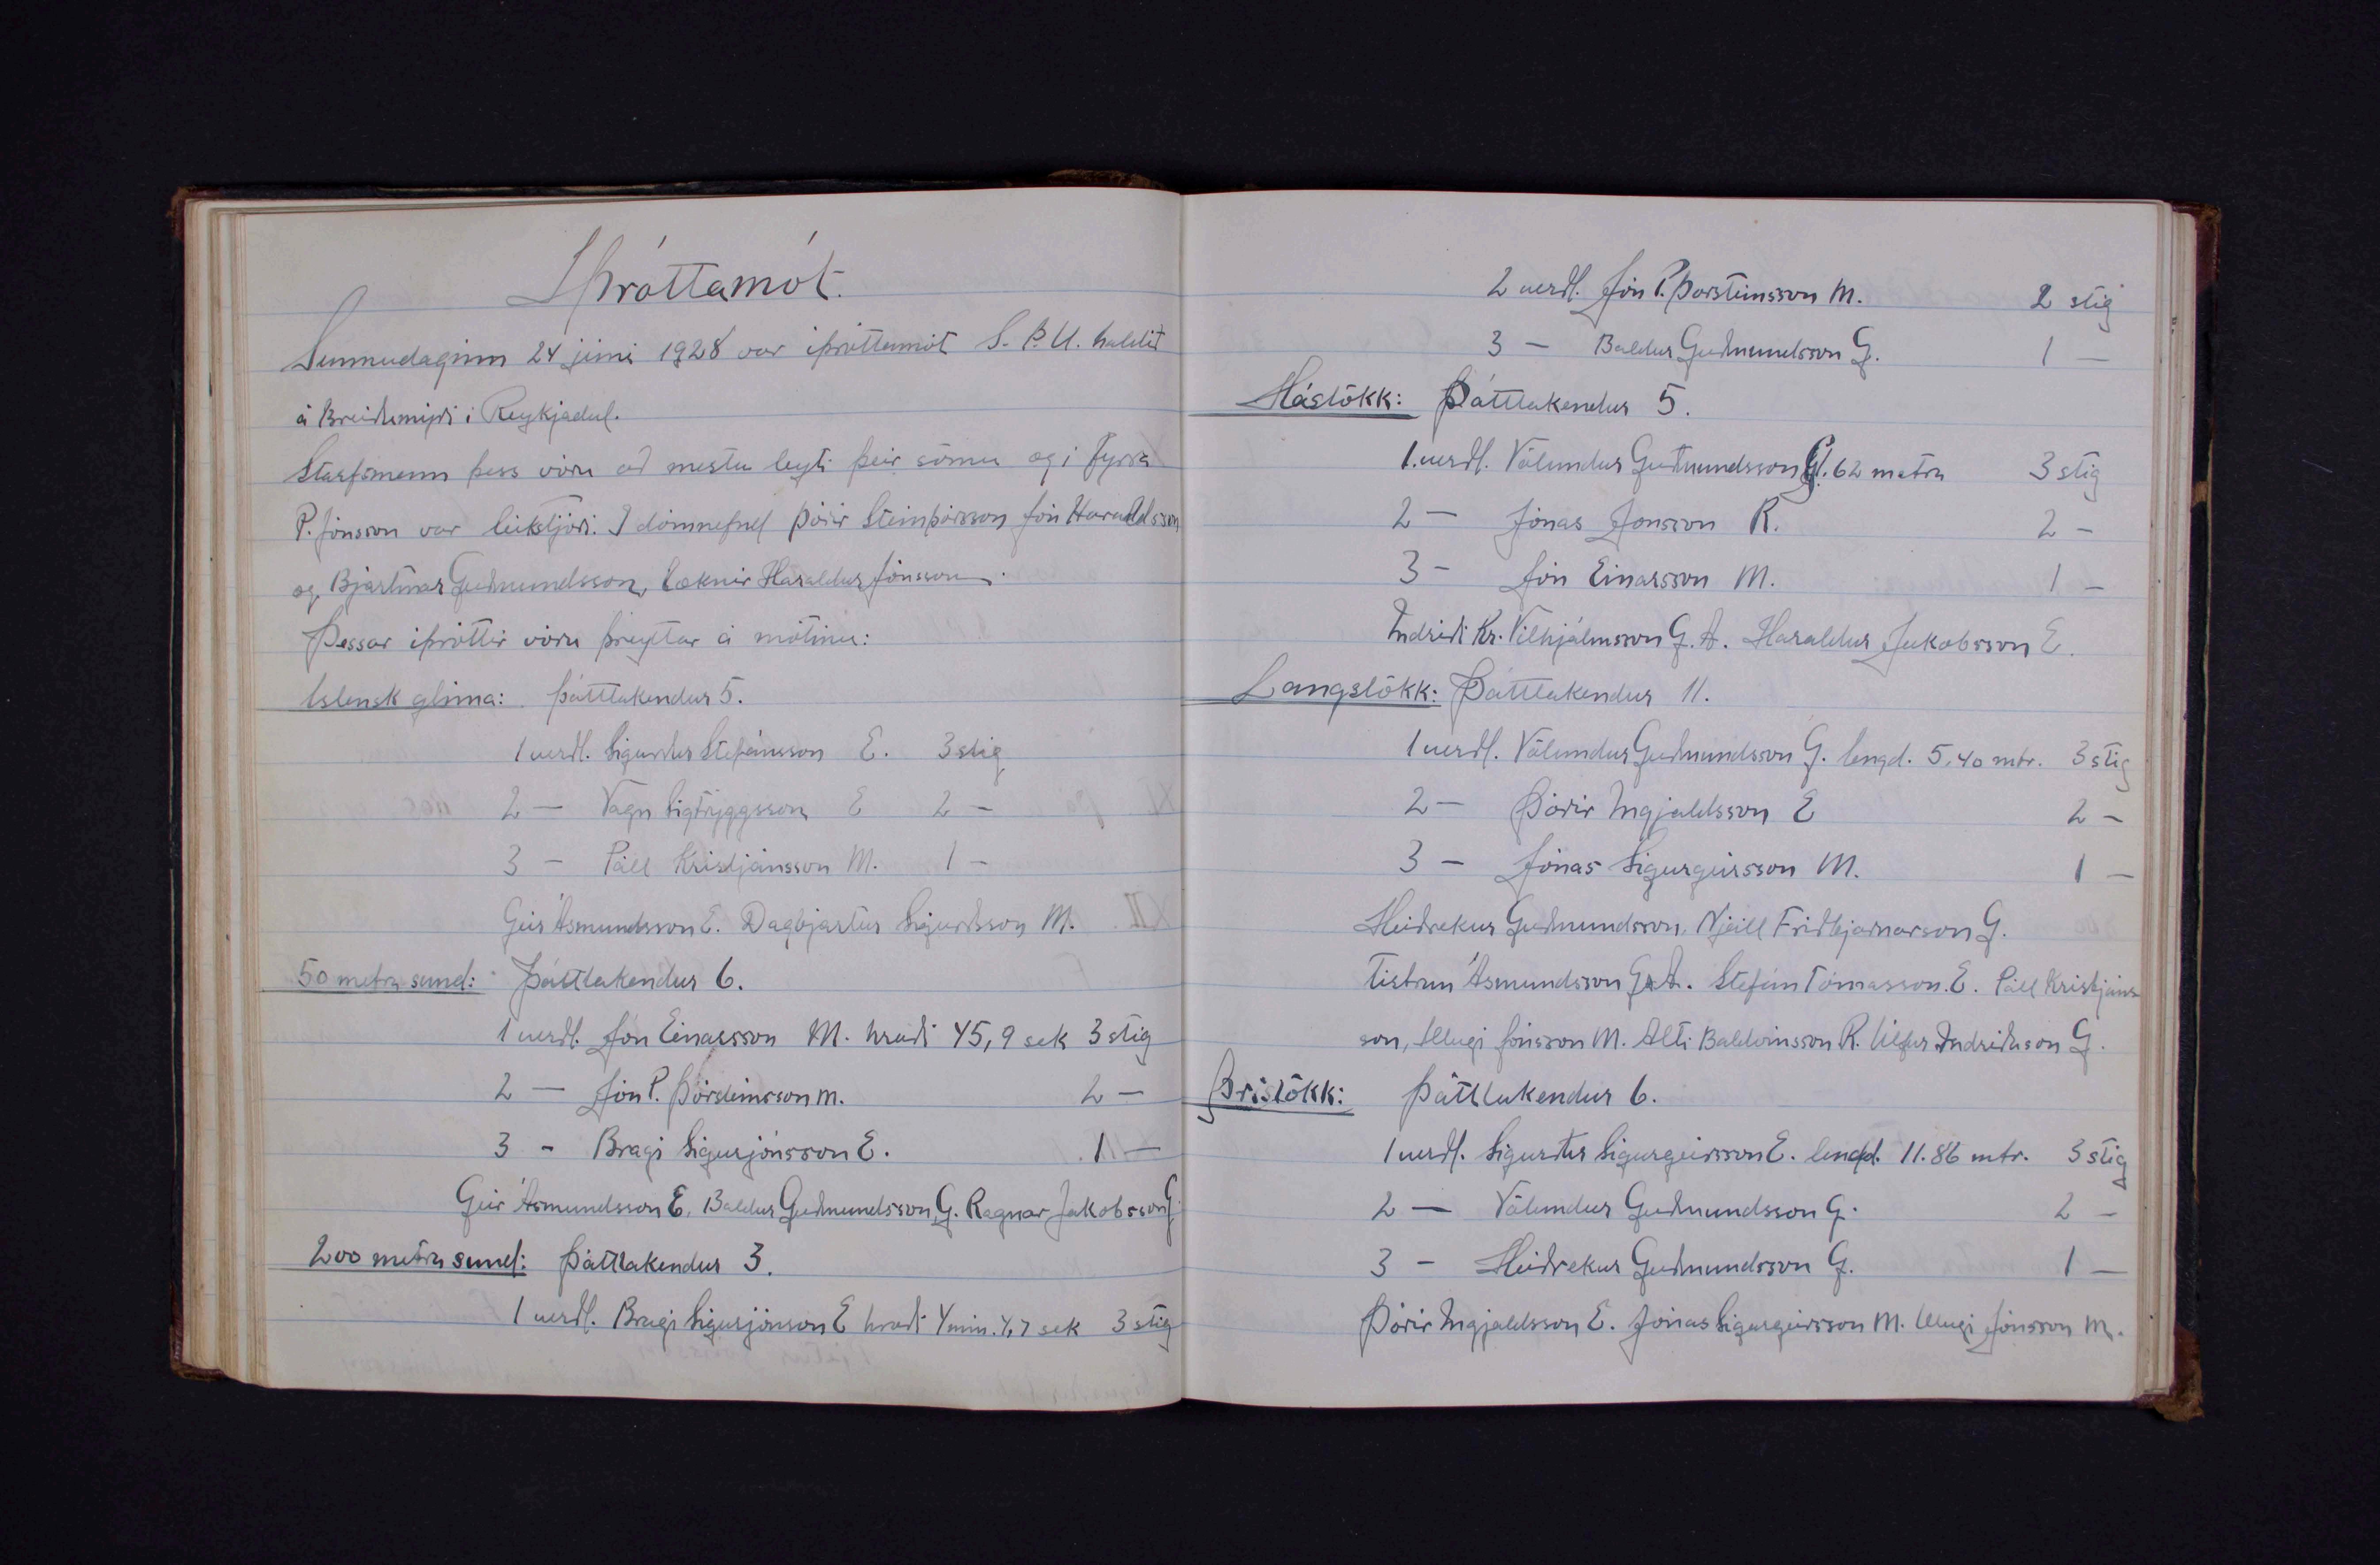 Íþróttamót.
Sunnudaginn 24 júní 1928 var íþróttamót S. Þ. U. haldið
á Breiðumýri í Reykjadal.
Starfsmenn þess vóru að mestu leyti þeir sömu og í fyrra
P. Jónsson var leikstjóri. Í dómnefnd Þórir Steinþórsson Jón Haraldsson
og Bjartmar Guðmundsson, læknir Haraldur Jónsson.
Þessar íþróttir vóru þreyttar á mótinu:
Íslensk glíma: Þátttakendur 5.
1 verðl. Sigurður Stefánsson E. 3 stig
2 — Vagn Sigtryggsson E 2 -
3 — Páll Kristjánsson M. 1 -
Geir Ásmundsson E. Dagbjartur Sigurðsson M.
50 metra sund: Þátttakendur 6.
1 verðl. Jón Einarsson M. hraði 45,9 sek 3 stig
2 — Jón P. Þorsteinsson M. 2 —
3 - Bragi Sigurjónsson E. 1 —
Geir Ásmundsson E. Baldur Guðmundsson, G. Ragnar Jakobsson G.
200 metra sund: Þátttakendur 3.
1 verðl. Bragi Sigurjónson E hraði 4 mín. 4,7 sek 3 stig
2 verðl. Jón P. Þorsteinsson M. 2 stig
3 — Baldur Guðmundsson G. 1 —
Hástökk: Þátttakendur 5.
1. verðl. Völundur Guðmundsson G 1.62 metra 3 stig
2 — Jónas Jónsson R. 2 -
3 - Jón Einarsson M. 1 -
Indriði Kr. Vilhjálmsson G. A. Haraldur Jakobsson E.
Langstökk: Þátttakendur 11.
1 verðl. Völundur Guðmundsson G. lengd. 5,40 mtr. 3 stig
2 — Þórir Ingjaldsson E 2 -
3 — Jónas Sigurgeirsson M. 1 —
Heiðrekur Guðmundsson, Njáll Friðbjarnarson G.
Tistram Ásmundsson G.A. Stefán Tómasson. E. Páll Kristjáns
son, Illugi Jónsson M. Atli Baldvinsson R. Úlfur Indriðason G.
Þrístökk: Þátttakendur 6.
1 verðl. Sigurður Sigurgeirsson E. lengd. 11.86 mtr. 3 stig
2 — Völundur Guðmundsson G. 2 -
3 - Heiðrekur Guðmundsson G. 1 —
Þórir Ingjaldsson E. Jónas Sigurgeirsson M. Illugi Jónsson M.